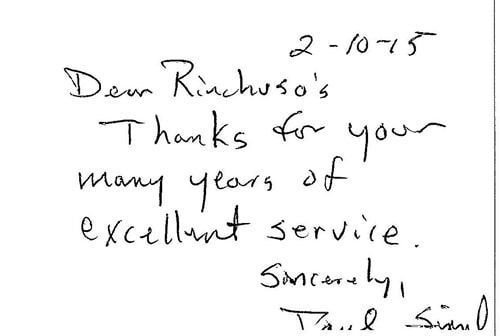 2-10-15
Dear Rinchuso's
Thanks for your
many years of
excellent service.
Sincerely,
Paul